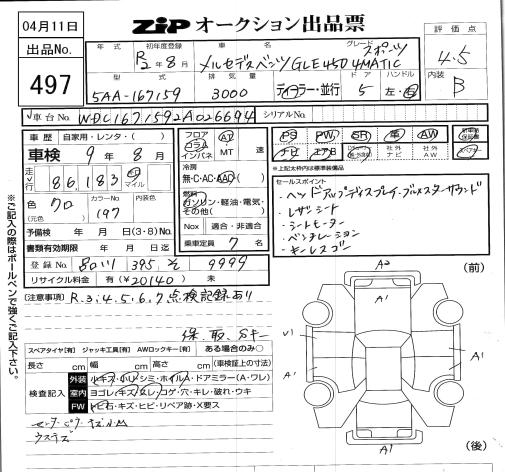 04月11日
ZIP オークション出品票
出品No.
497
年式 初年度登録 車名 グレード
R2年8月 メルセデスベンツ GLE450 4MATIC スポーツ
型式 排気量 ドア ハンドル
5AA-167159 3000 ディーラー・並行 5 左・右
評価点
4.5
内装
B
車台No. WDC1671592A026694 シリアルNo.
車歴 自家用・レンタ・( )
車検 9年8月
走行 86,183 km マイル
色 クロ カラーNo 197 内装色
(元色)
予備検 年 月 日(3・8)No.
書類有効期限 年 月 日迄
登録No. 品川 395 そ 9999
リサイクル料金 有(¥20140) 未
フロア コラム インパネ AT MT 速
冷房
無・C・AC・AAC
燃料
ガソリン・軽油・電気・その他( )
Nox 適合・非適合
乗車定員 7 名
PS PW SR 革 AW
ナビ エアB 社外ナビ 社外AW
※上記太枠内は標準装備品
セールスポイント
・ヘッドアップディスプレイ・ブルメスターサウンド
・レザーシート
・シートヒーター
・ベンチレーション
・キーレスゴー
(注意事項) R.3.4.5.6.7点検記録あり
保、取、Sキー
スペアタイヤ[有] ジャッキ工具[有] AWロックキー[有] ある場合のみ○
長さ cm 幅 cm 高さ cm (車検証上の寸法)
検査記入
外装 ルキズ・小リ・シミ・ホイルA・ドアミラー(A・ワレ)
室内 ヨゴレ・キズ・スレ・コゲ・穴・キレ・破れ・ウキ
FW トビ石・キズ・ヒビ・リペア跡・X要ス
ウスキズ
※ご記入の際はボールペンで強くご記入下さい。
(前)
A2
A1
V1
A1
A1
A1
A1
(後)